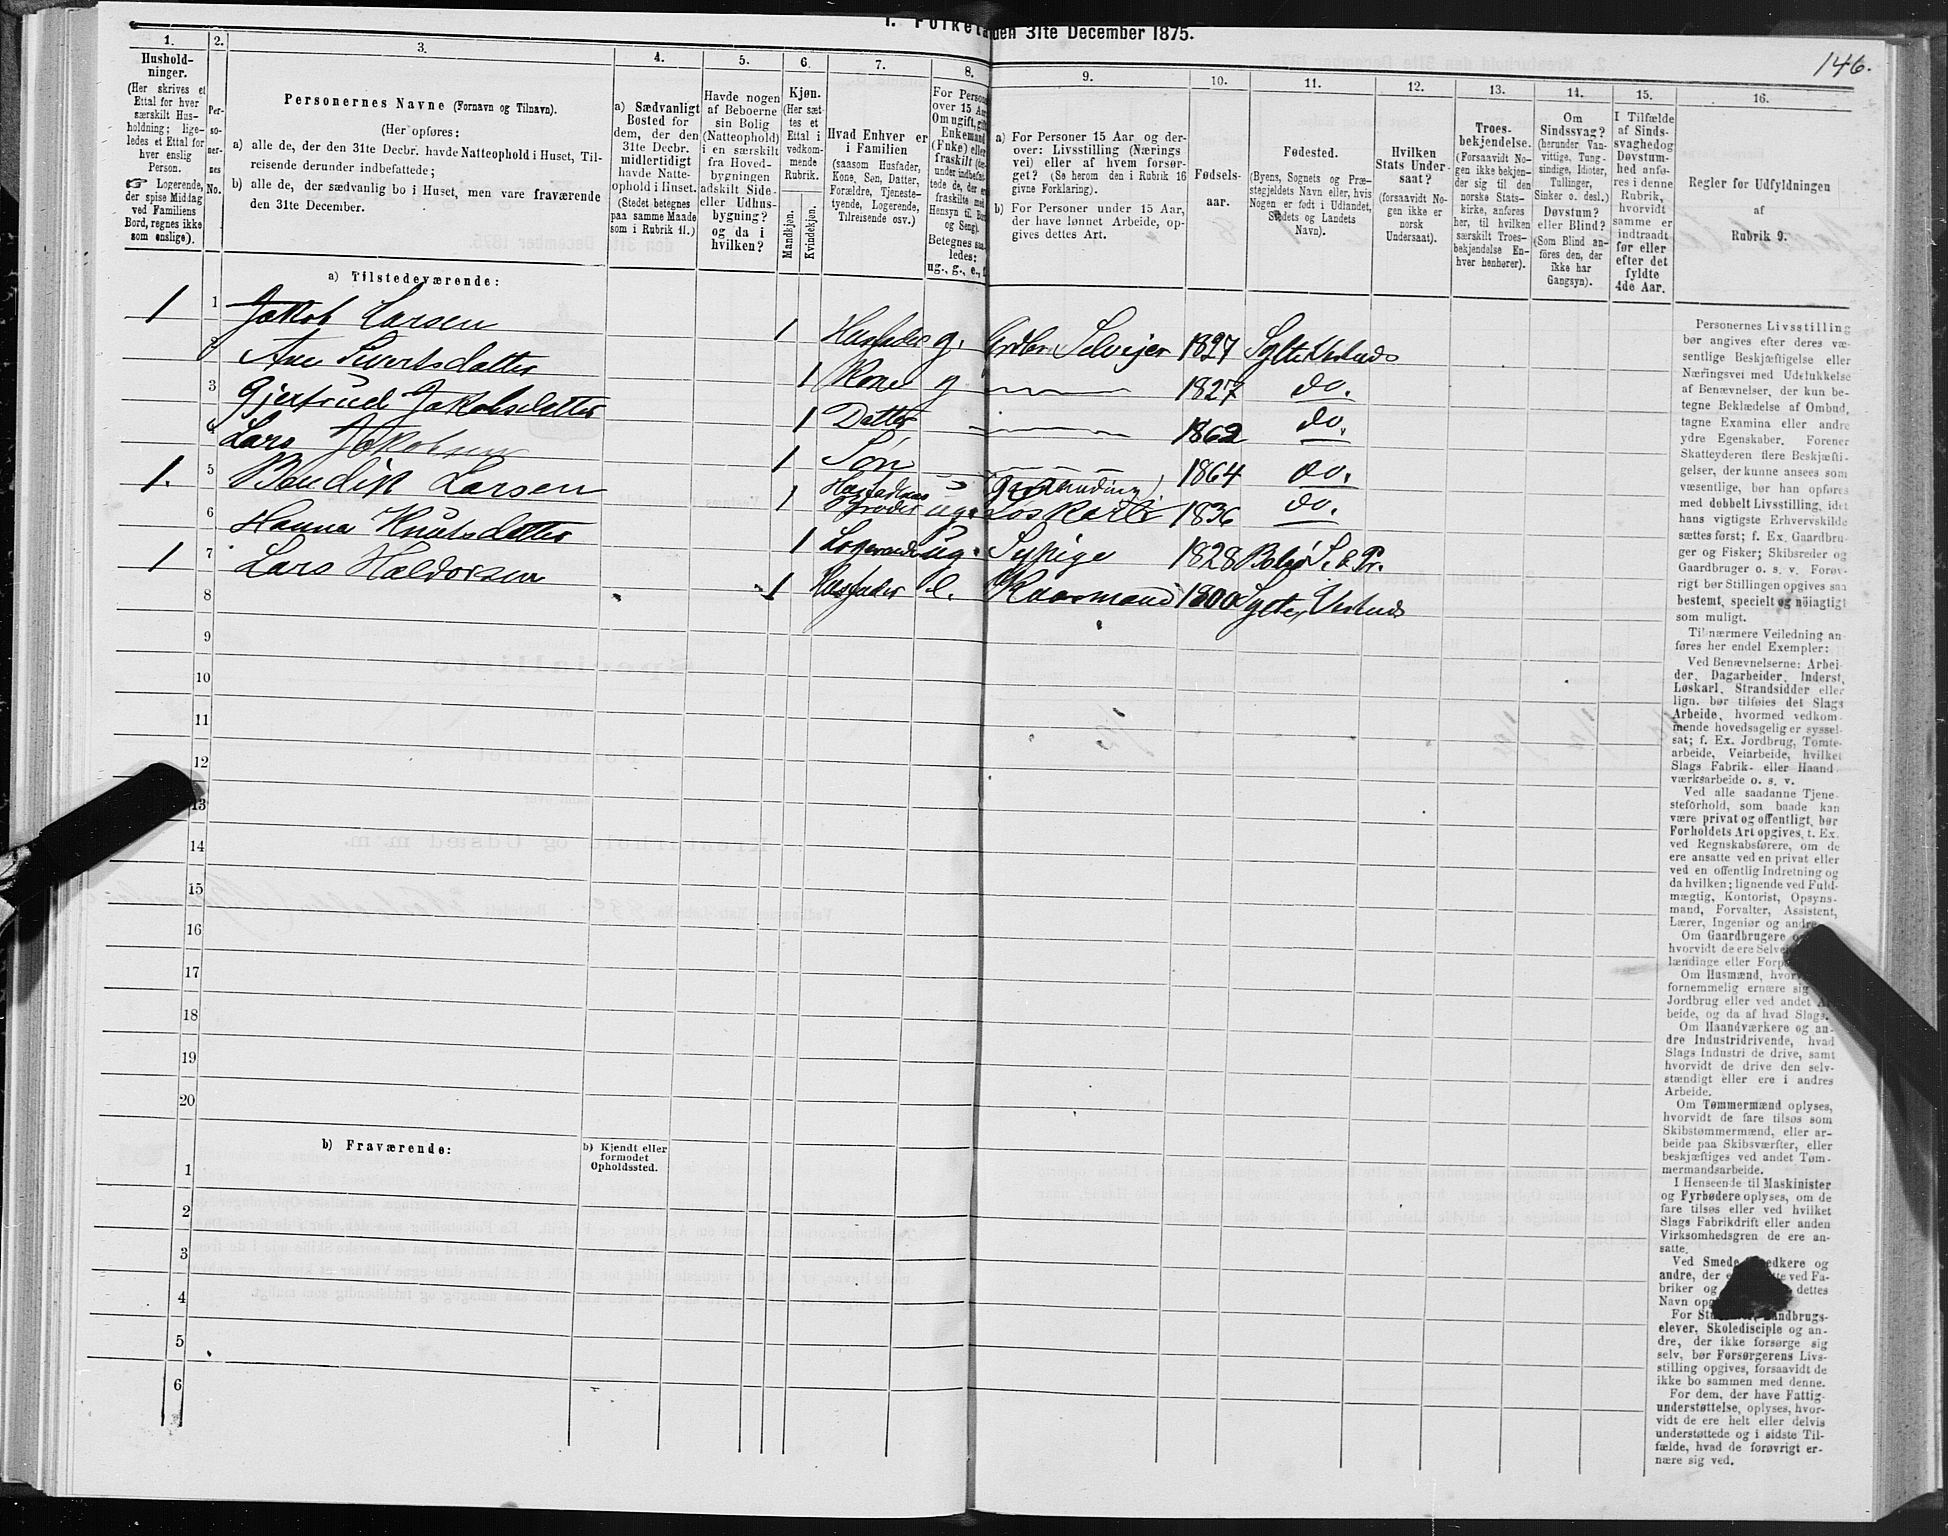 I. Folketal den 31te December 1875.
146.
1.
Hushold-
ninger.
(Her skrives et
Ettal for hver
særskilt Hus-
holdning; lige-
ledes et Ettal for
hver enslig
Person.
☞ Logerende,
der spise Middag
ved Familiens
Bord, regnes ikke
som enslige).
2.
Per-
so-
ner-
nes
No.
3.
Personernes Navne (Fornavn og Tilnavn).
(Her opføres:
a) alle de, der den 31te Decbr. havde Natteophold i Huset, Til-
reisende derunder indbefattede;
b) alle de, der sædvanlig bo i Huset, men vare fraværende
den 31te December.
4.
a) Sædvanligt
Bosted for
dem, der den
31te Decbr.
midlertidigt
havde Natte-
ophold i Huset.
(Stedet betegnes
paa samme Maade
som i Rubrik 11.)
5.
Havde nogen
af Beboerne
sin Bolig
(Natteophold)
i en særskilt
fra Hoved-
bygningen
adskilt Side-
eller Udhus-
bygning?
og da i
hvilken?
6.
Kjøn.
(Her sæt-
tes et
Ettal i
vedkom-
mende
Rubrik.
Mandkjøn.
Kvindekjøn.
7.
Hvad Enhver er
i Familien
(saasom Husfader,
Kone, Søn, Datter,
Forældre, Tjeneste-
tyende, Logerende,
Tilreisende osv.)
8.
For Personer
over 15 Aar:
Om ugift, gift,
Enkemand
(Enke) eller
fraskilt
Betegnes saa-
ledes:
ug., g., e., f.
9.
a) For Personer 15 Aar og der-
over: Livsstilling (Nærings
vei) eller af hvem forsør-
get? (Se herom den i Rubrik 16
givne Forklaring).
b) For Personer under 15 Aar,
der have lønnet Arbeide, op-
gives dettes Art.
10.
Fødsels-
aar.
11.
Fødested.
(Byens, Sognets og Præ-
stegjeldets Navn eller, hvis
Nogen er født i Udlandet,
Stedets og Landets
Navn).
12.
Hvilken
Stats Under-
saat?
(forsaavidt No-
gen ikke er
norsk
Undersaat).
13.
Troes-
bekjendelse.
(Forsaavidt No-
gen ikke bekjen-
der sig til den
norske Stats-
kirke, anføres
her, til hvilken
særskilt Troes-
bekjendelse En-
hver henhører).
14.
Om
Sindssvag?
(herunder Van-
vittige, Tung-
sindige, Idioter,
Tullinger,
Sinker o. desl.)
Døvstum?
eller Blind?
(Som Blind an-
føres den, der
ikke har
Gangsyn).
15.
I Tilfælde
af Sinds-
svaghedog
Døvstum-
hed anfø-
res i denne
Rubrik,
hvorvidt
samme er
indtraadt
før eller
efter det
fyldte
4de Aar.
16.
Regler for Udfyldningen
af
Rubrik 9.
a) Tilstedeværende:
1 1 Jakob Larsen 1 Husfader g. Selveier 1827 Sylte Vestnæs
2 Ane Sivertsdatter 1 Kone g 1827 do.
3 Gjertrud Jakobsdatter 1 Datter 1862 do.
4 Lars Jakobsen 1 Søn 1864 do.
1. 5 Bendik Larsen 1 Husfaders Broder ug. Løskarl 1836 do.
6 Hanna Knutsdatter 1 Logerende ug. Sypige 1828 Bolsø S. & Pr.
1 7 Lars Haldorsen 1 Husfader e. Kaarmand 1800 Sylte, Vestnæs
8
9
10
11
12
13
14
15
16
17
18
19
20
b) Fraværende:
b) Kjendt eller
formodet
Opholdssted.
1
2
3
4
5
6
Personernes Livsstilling
bør angives efter deres væ-
sentlige Beskjæftigelse eller
Næringsvei med Udelukkelse
af Benævnelser, der kun be-
tegne Beklædelse af Ombud,
tagne Examina eller andre
ydre Egenskaber. Forener
Skatteyderen flere Beskjæfti-
gelser, der kunne ansees som
væsentlige, bør han opføres
med dobbelt Livsstilling, idet
hans vigtigste Erhvervskilde
sættes først; f. Ex. Gaardbru-
ger og Fisker; Skibsreder og
Gaardbruger o. s. v. Forøv-
rigt bør Stillingen opgives saa
bestemt, specielt og nöiagtigt
som muligt.
Til nærmere Veiledning an-
føres her endel Exempler:
Ved Benævnelserne: Arbei-
der, Dagarbeider, Inderst,
Løskarl, Strandsidder eller
lign. bør tilføies det Slags
Arbeide, hvormed vedkom-
mende hovedsagelig er syssel-
sat; f. Ex. Jordbrug, Tomte-
arbeide, Veiarbeide, hvilket
Slags Fabrik- eller Haand
værksarbeide o. s. v.
Ved alle saadanne Tjene-
steforhold, som baade kan
være privat og offentligt, bør
Forholdets Art opgives, t. Ex.
ved Regnskabsførere, om de
ere ansatte ved en privat eller
ved en offentlig Indretning og
da hvilken; lignende ved Fuld-
mægtig, Kontorist, Opsyns-
mand, Forvalter, Assistent,
Lærer, Ingeniør og andre.
Om Gaardbrugere
hvorvidt de ere
lændinge eller
Om Husmænd,
fornemmelig ernære sig
Jordbrug eller ved andet
beide, og da af hvad Slags.
Om Haandværkere og an-
dre Industridrivende, hvad
Slags Industri de drive, samt
hvorvidt de drive den selv-
stændigt eller ere i andres
Arbeide.
Om Tømmermænd oplyses,
hvorvidt de fare tilsøs som
Skibstømmermænd, eller ar-
beide paa Skibsværfter, eller
beskjæftiges ved andet Tøm-
mermandsarbeide.
I Henseende til Maskinister
og Fyrbødere oplyses, om de
fare tilsøs eller ved hvilket
Slags Fabrikdrift eller anden
Virksomhedsgren de ere an-
satte.
Ved Smede,
andre, der ved Fa-
briker og dettes
Navn
For
elever, Skoledisciple og an-
dre, der ikke forsørge sig
selv, bør Forsørgerens Livs-
stilling opgives, forsaavidt de
ikke bo sammen med denne.
For dem, der have Fattig-
understøttelse, oplyses, hvor-
vidt de ere helt eller delvis
understøttede og i sidste Til-
fælde, hvad de forøvrigt er-
nære sig ved.